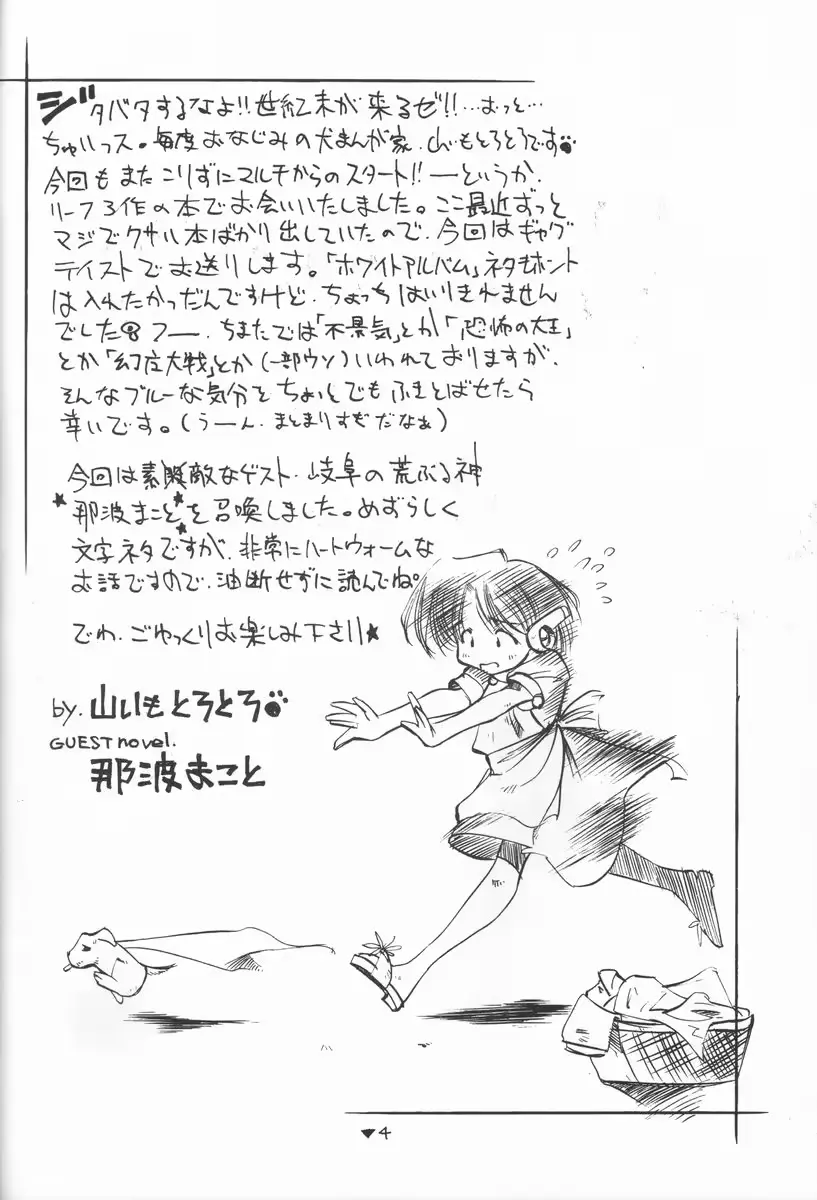 ジタバタするなよ!!世紀末が来るぜ!!…おっと…
ちゅいっス。毎度おなじみの犬まんが家、山いもとろとろです
今回もまたこりずにマルチからのスタート!!―というか、
リーフ3作の本でお会いいたしました。ここ最近ずっと
マジでクサい本ばかり出していたので、今回はギャグ
テイストでお送りします。「ホワイトアルバム」ネタもホント
は入れたかっだんですけど、ちょっちはいりきれません
でした フー、ちまたでは「不景気」とか「恐怖の大王」
とか「幻庄大戦」とか(一部ウソ)いわれておりますが、
そんなブルーな気分をちょいとでもふきとばせたら
幸いです。(うーん、まとまりすぎだなぁ)
今回は素敵なゲスト・岐阜の荒ぶる神
★那波まこと★を召喚しました。めずらしく
文字ネタですが、非常にハートウォームな
お話ですので、油断せずに読んでね。
でわ、ごゆっくりお楽しみ下さい★
by.山いもとろとろ
GUEST novel.
那波まこと
▼4